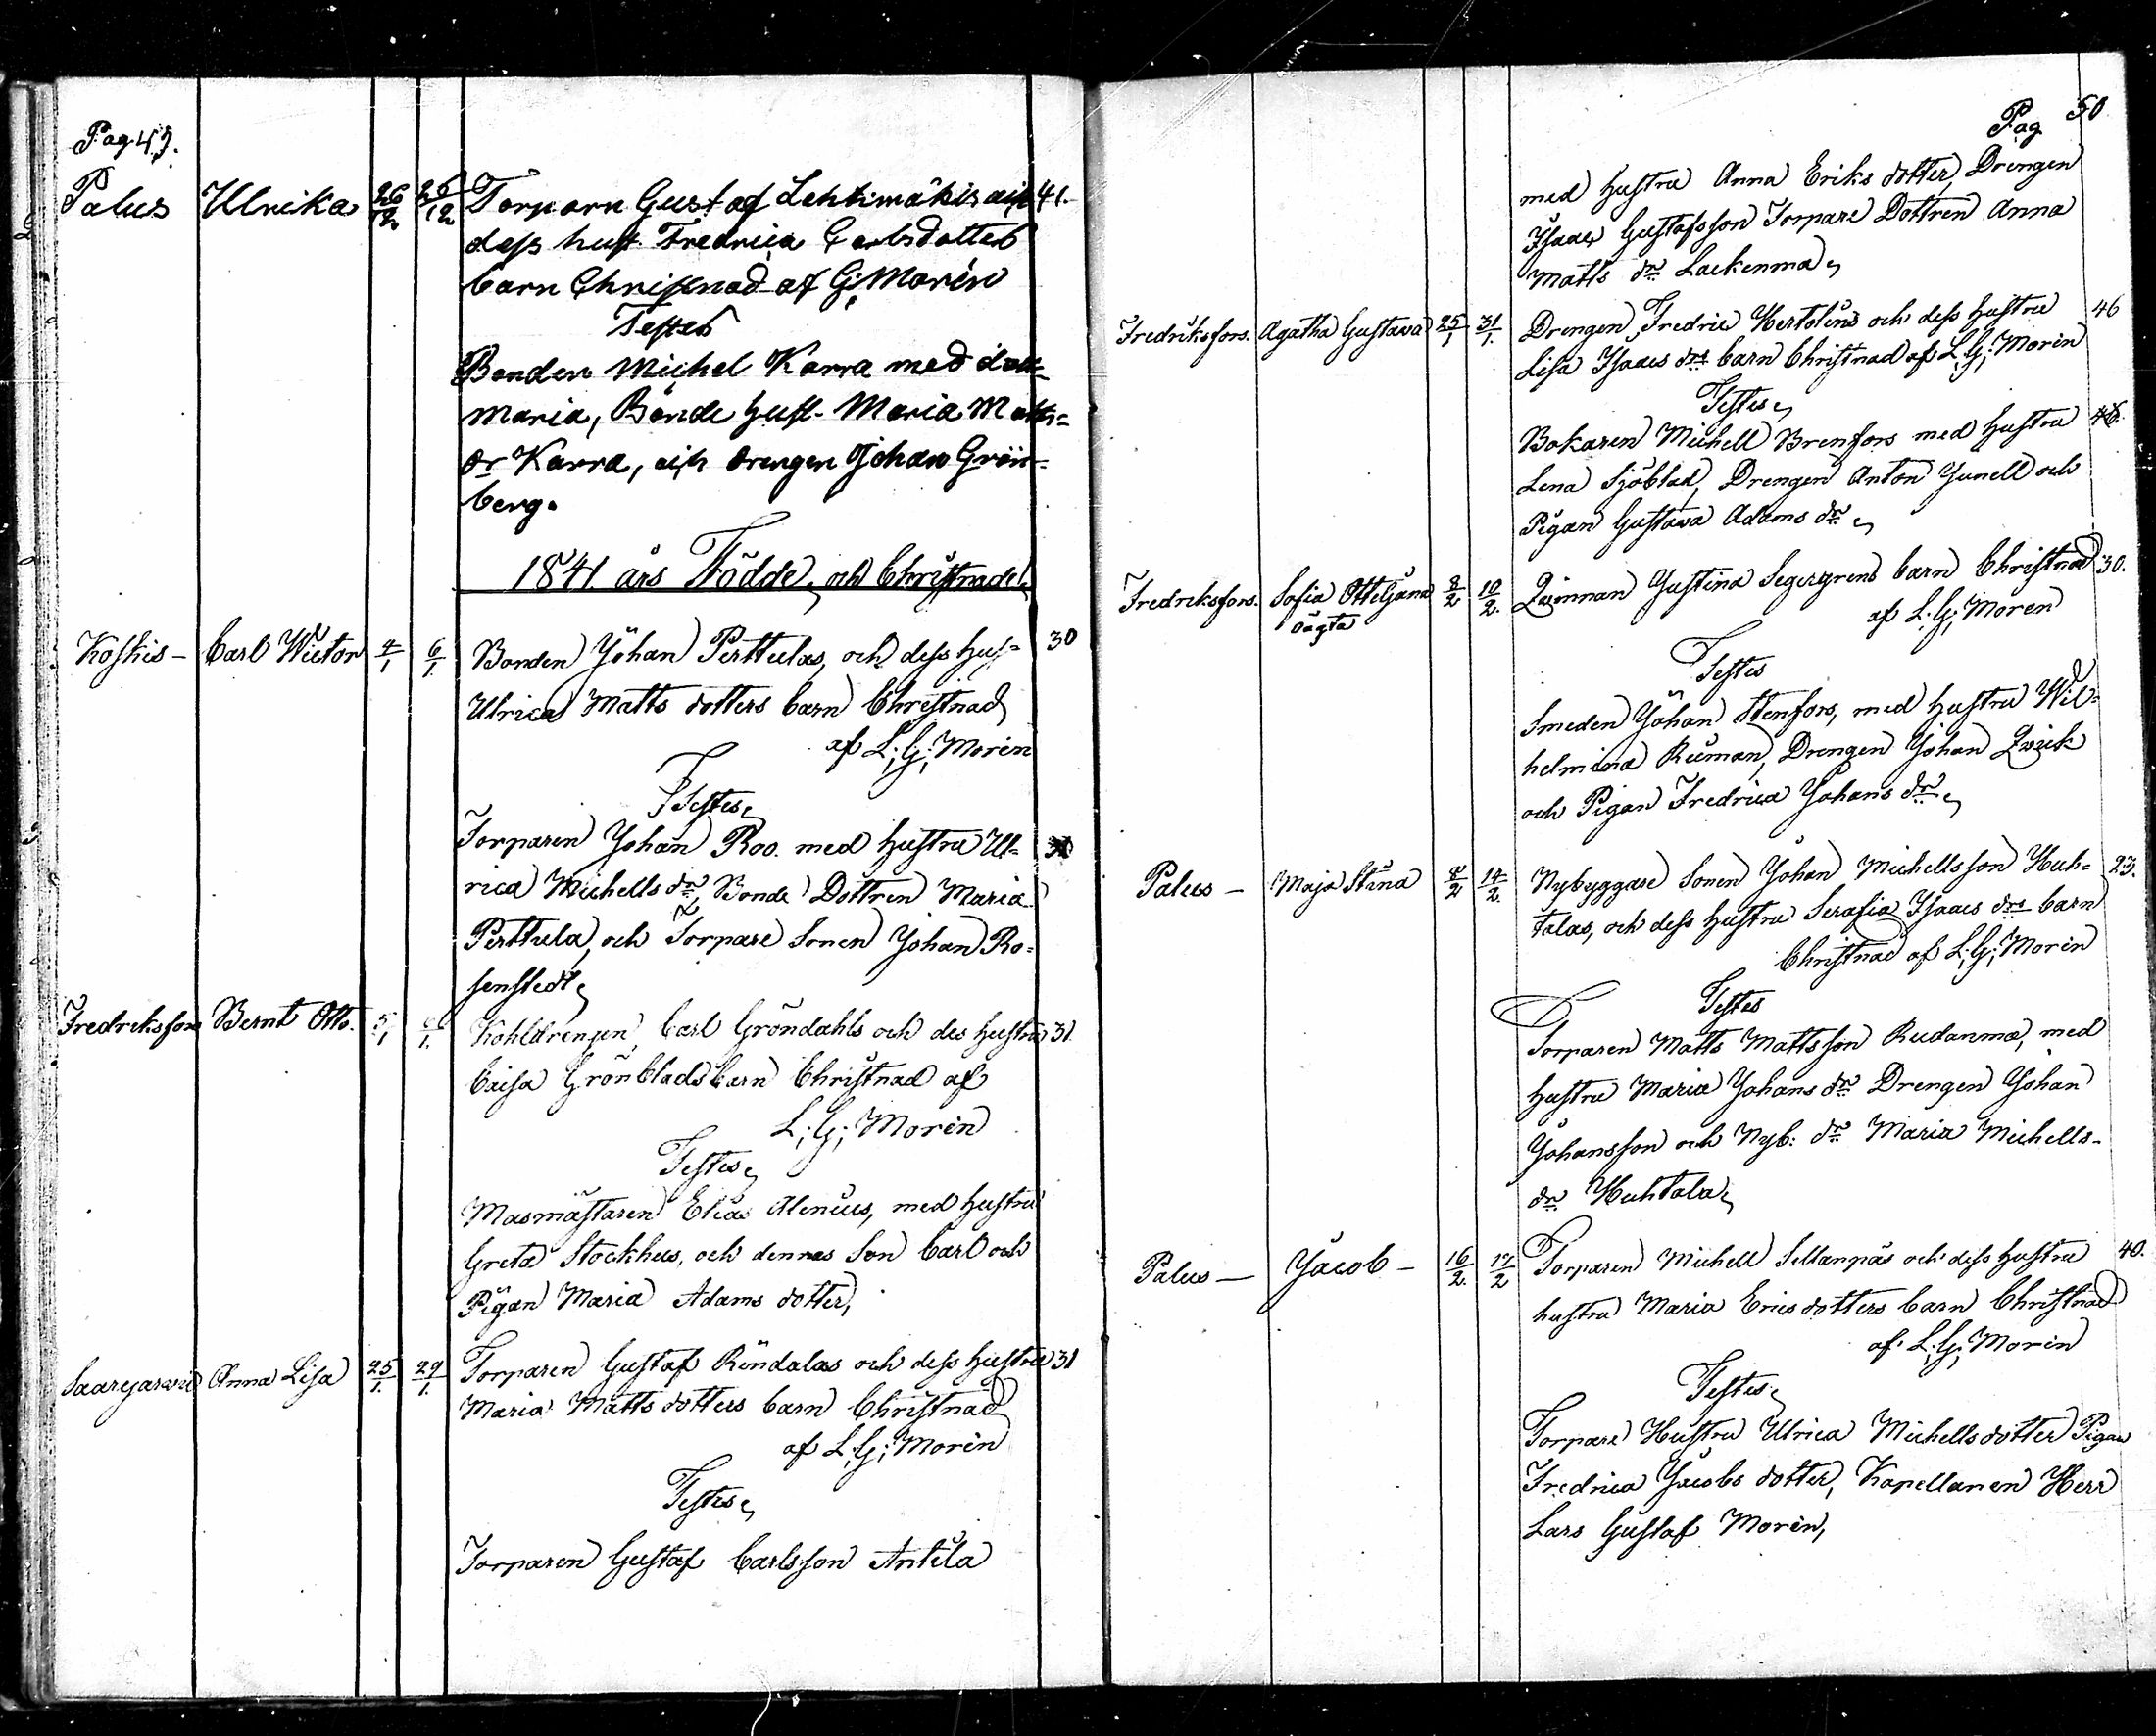 Pag. 49.
Palus Ulrika 26/12. 26/12 Torparn Gustaf Lehtimäkis och 41.
dess hust. Fredrica Carlsdotters
barn Christnad af G: Morin
Testes
Bonden Michel Karra med dott-
Maria, Bonde hust. Maria Matts=
dr Karra, och drengen Johan Grön=
berg.
1841 års Födde och Christnade
Koskis – Carl Wictor 4/1 6/1. Bonden Johan Perttulas, och dess Hus= 30
Ulrica Matts dotters barn Christnad
af L: G: Morin
Testes
Torparen Johan Roo. med hustru Ul=
rica Michells dr, Bonde Dottren Maria
Perttula, och Torpare Sonen Johan Ro=
senstedt
Fredriksfors Bernt Otto. 5/1 6/1. Kohldrengen, Carl Gröndahls och des hustru 31
Caisa Grönblads barn Christnad af
L: G: Morin
Testes
Masmästaren Elias Alenius, med hustru
Greta Stockhus, och dennes Son Carl och
Pigan Maria Adams dotter,
Saaryarwi Anna Lisa 25/1. 29/1. Torparen Gustaf Rindalas och dess hustru 31
Maria Matts dotters barn Christnad
af L: G: Morin
Testes
Torparen Gustaf Carlsson Antila
Pag. 50
med hustru Anna Eriks dotter, Drengen
Isaac Gustafsson Torpare Dottren Anna
Matts dr Lackenma
Fredriksfors. Agatha Gustava 25/1 31/1. Drengen Fredric Hertolins och dess hustru 46
Lisa Isaacs drs barn Christnad af L: G: Morin
Testes
Bokaren Michell Brenfors med hustru
Lena Sjöblad, Drengen Anton Junell och
Pigan Gustava Adams dr
Fredriksfors. Sofia Otteljana 8/2 10/2. Qvinnan Justina Segergrens barn Christnad 30.
oägta af L: G: Moren
Testes
Smeden Johan Stenfors, med hustru Wil=
helmina Reuman, Drengen Johan Qvick
och Pigan Fredrica Johans dr
Palus – Maja Stina 8/2 14/2. Nybyggare Sonen Johan Michellsson Huh= 23.
talas, och dess hustru Serafia Isaacs drs barn
Christnad af L: G: Morin
Testes
Torparen Matts Mattsson Rudanma, med
hustru Maria Johans dr Drengen Johan
Johansson och Nyb: dr Maria Michells-
dr Huhtala
Palus – Jacob – 16/2. 17/2 Torparen Michell Sillanpäs och dess hustru 40.
hustru Maria Erics dotters barn Christnad
af L: G: Morin
Testes
Torpare Hustru Ulrica Michellsdotter Pigan
Fredrica Jacobs dotter, Kapellanen Herr
Lars Gustaf Morin,